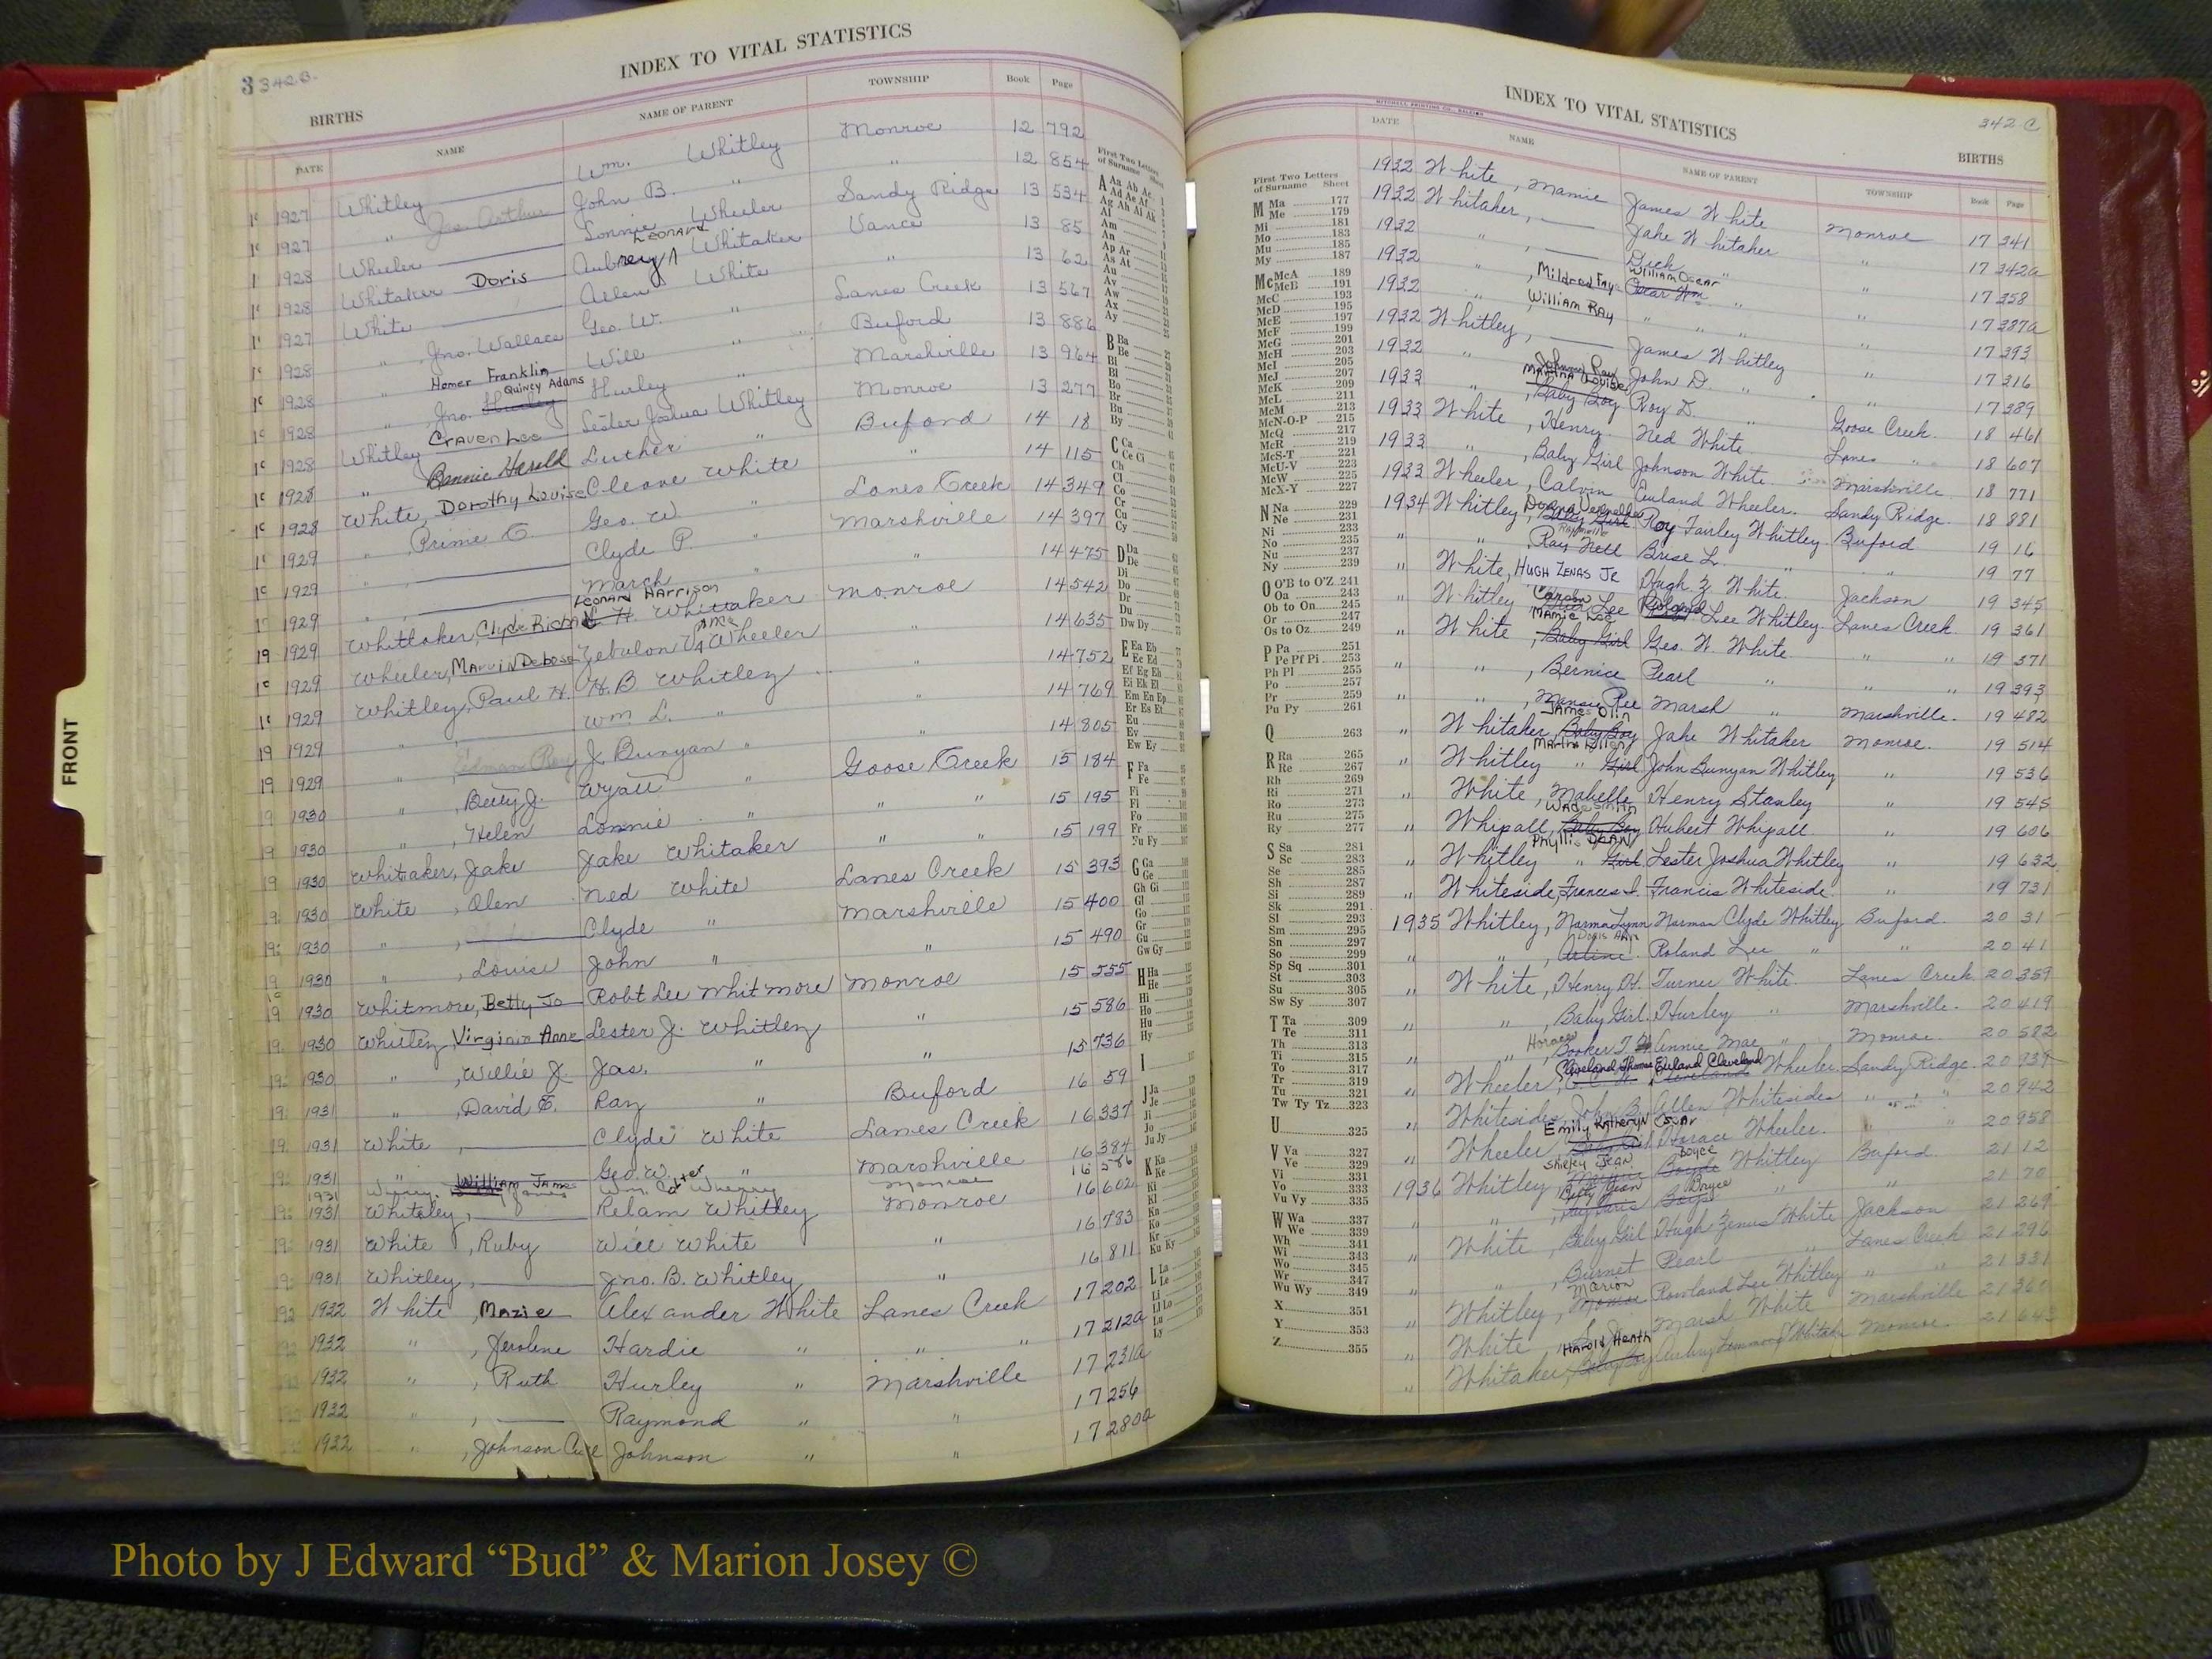 3 342 B.
INDEX TO VITAL STATISTICS
BIRTHS
DATE NAME NAME OF PARENT TOWNSHIP Book Page
1927 Whitley Wm. Whitley Monroe 12 792
1927 " Jas. Arthur John B. " " 12 854
1928 Wheeler Lonnie Wheeler Sandy Ridge 13 534
1928 Whitaker Doris Aubrey Leonard Whitaker Vance 13 85
1927 White Allen White " 13 62
1928 " Jno. Wallace Geo. W. " Lanes Creek 13 567
1928 " Homer Franklin Will " Buford 13 886
1928 " Jno. Quincy Adams Hurley " Marshville 13 964
1928 Whitley Craven Lee Lester Joshua Whitley Monroe 13 277
1928 " Bennie Harold Luther " Buford 14 18
1928 White, Dorothy Louise Cleave White " 14 115
1929 " Prime C. Geo. W. " Lanes Creek 14 349
1929 " , Clyde P. " Marshville 14 397
1929 " , March " " 14 475
1929 Whittaker, Clyde Richard L. H. Leonard Harrison Whittaker Monroe 14 542
1929 Wheeler, Marvin Debose Zebulon Vance Wheeler " 14 635
1929 Whitley, Paul H. H. B Whitley " 14 752
1929 " Wm L. " " 14 769
1929 " Edman Ray J. Bunyan " " 14 805
1930 " , Betty J. Wyatt " Goose Creek 15 184
1930 " , Helen Lonnie " " " 15 195
1930 Whitaker, Jake Jake Whitaker " " 15 199
1930 White , Olen Ned White Lanes Creek 15 393
1930 " , Clyde " Marshville 15 400
1930 " , Louise John " " 15 490
1930 Whitmore, Betty Jo Robt Lee Whitmore Monroe 15 555
1930 Whitley, Virginia Anne Lester J. Whitley " 15 586
1930 " , Willie J. Jas. " " 15 736
1931 " , David E. Ray " Buford 16 59
1931 White , Clyde White Lanes Creek 16 337
1931 " William James Geo. W. " Marshville 16 384
1931 James Wm. Wherry Monroe 16 586
1931 Whiteley, Kelam Whitley Monroe 16 602
1931 White , Ruby Will White " 16 783
1931 Whitley, Jno. B. Whitley " 16 811
1932 White , Mazie Alexander White Lanes Creek 17 202
1932 " , Jerolene Hardie " " " 17 212a
1932 " , Ruth Hurley " Marshville 17 231a
1932 " , Raymond " " 17 256
1932 " , Johnson Johnson " " 17 280a
First Two Letters of Surname Sheet
A Aa Ab Ac
Ad Ae Af
Ag Ah Ai Ak
Al
Am
An
Ap Ar
As At
Au
Av
Aw
Ax
Ay
B Ba
Be
Bi
Bl
Bo
Br
Bu
By
C Ca
Ce Ci
Ch
Cl
Co
Cr
Cu
Cy
D Da
De
Di
Do
Dr
Du
Dw Dy
E Ea Eb
Ec Ed
Ef Eg Eh
Ei Ek El
Em En Ep
Er Es Et
Eu
Ev
Ew Ey
F Fa
Fe
Fi
Fl
Fo
Fr
Fu Fy
G Ga
Ge
Gh Gi
Gl
Go
Gr
Gu
Gw Gy
H Ha
He
Hi
Ho
Hu
Hy
I
J Ja
Je
Ji
Jo
Ju Jy
K Ka
Ke
Ki
Kl
Kn
Ko
Kr
Ku Ky
L La
Le
Li
Ll Lo
Lu
Ly
FRONT
INDEX TO VITAL STATISTICS
342 C
BIRTHS
MITCHELL PRINTING CO., RALEIGH
First Two Letters of Surname Sheet
M Ma 177
Me 179
Mi 181
Mo 183
Mu 185
My 187
Mc McA 189
McB 191
McC 193
McD 195
McE 197
McF 199
McG 201
McH 203
McI 205
McJ 207
McK 209
McL 211
McM 213
McN-O-P 215
McQ 217
McR 219
McS-T 221
McU-V 223
McW 225
McX-Y 227
N Na 229
Ne 231
Ni 233
No 235
Nu 237
Ny 239
O O'B to O'Z 241
Oa 243
Ob to On 245
Or 247
Os to Oz 249
P Pa 251
Pe Pf Pi 253
Ph Pl 255
Po 257
Pr 259
Pu Py 261
Q 263
R Ra 265
Re 267
Rh 269
Ri 271
Ro 273
Ru 275
Ry 277
S Sa 281
Sc 283
Se 285
Sh 287
Si 289
Sk 291
Sl 293
Sm 295
Sn 297
So 299
Sp Sq 301
St 303
Su 305
Sw Sy 307
T Ta 309
Te 311
Th 313
Ti 315
To 317
Tr 319
Tu 321
Tw Ty Tz 323
U 325
V Va 327
Ve 329
Vi 331
Vo 333
Vu Vy 335
W Wa 337
We 339
Wh 341
Wi 343
Wo 345
Wr 347
Wu Wy 349
X 351
Y 353
Z 355
DATE NAME NAME OF PARENT TOWNSHIP Book Page
1932 White , Mamie James White Monroe 17 341
1932 Whitaker, Jake Whitaker " 17 342a
1932 " , Dick " " 17 358
1932 " , Mildred Fay William Oscar " " 17 387a
1932 " , William Ray " " " 17 393
1932 Whitley, James Whitley " 17 316
1932 " Johnny Ray John D. " " 17 389
1933 " , Martha Louise Baby Boy Roy D. " Goose Creek 18 461
1933 White , Henry Ned White Lanes " 18 607
1933 " , Baby Girl Johnson White Marshville 18 771
1933 Wheeler, Calvin Euland Wheeler. Sandy Ridge. 18 881
1934 Whitley, Baby Girl Roy Fairley Whitley. Buford 19 16
" " , Ray Nell Brise L. " " 19 77
" White, Hugh Zenas Jr Hugh Z White. Jackson 19 345
" Whitley Lee Roland Lee Whitley. Lanes Creek. 19 361
" White , Mamie Lee Baby Girl Geo. W. White. " " 19 371
" " , Bernice Pearl " " " 19 393
" " , Ree Marsh " Marshville. 19 482
" Whitaker, James Olin Baby Boy Jake Whitaker Monroe. 19 514
" Whitley " Martha Ellen Girl John Bunyan Whitley " 19 536
" White, Mabelle Henry Stanley " 19 545
" Whipall, Wade Smith Baby Boy Hubert Whipall " 19 606
" Whitley " Phyllis Dean Girl Lester Joshua Whitley " 19 632
" Whiteside, Frances I. Francis Whiteside. " 19 731
1935 Whitley, Norma Lynn Norman Clyde Whitley Buford. 20 31
" " , Doris Ann Arline Roland Lee " " 20 41
" White, Henry H. Turner White. Lanes Creek. 20 359
" " , Baby Girl. Hurley " Marshville. 20 419
" " , Horace Booker T. Annie Mae " Monroe. 20 582
" Wheeler, Cleveland Thomas Euland Cleveland Wheeler. Sandy Ridge. 20 939
" Whitesides, John B. Allen Whitesides " " 20 942
" Wheeler, Emily Katheryn Oscar Horace Wheeler. " " 20 958
1936 Whitley, Shirley Jean Boyce Whitley Buford. 21 12
" " , Betty Jean Boyce " " 21 70
" White , Baby Girl Hugh Zenus White Jackson 21 269
" " , Burnet Pearl " Lanes Creek 21 296
" Whitley, Marion Rowland Lee Whitley " " 21 331
" White, Marsh White Marshville 21 360
" Whitaker, Harold Heath Baby Boy Aubry Whitaker Monroe. 21 643
Photo by J Edward “Bud” & Marion Josey ©